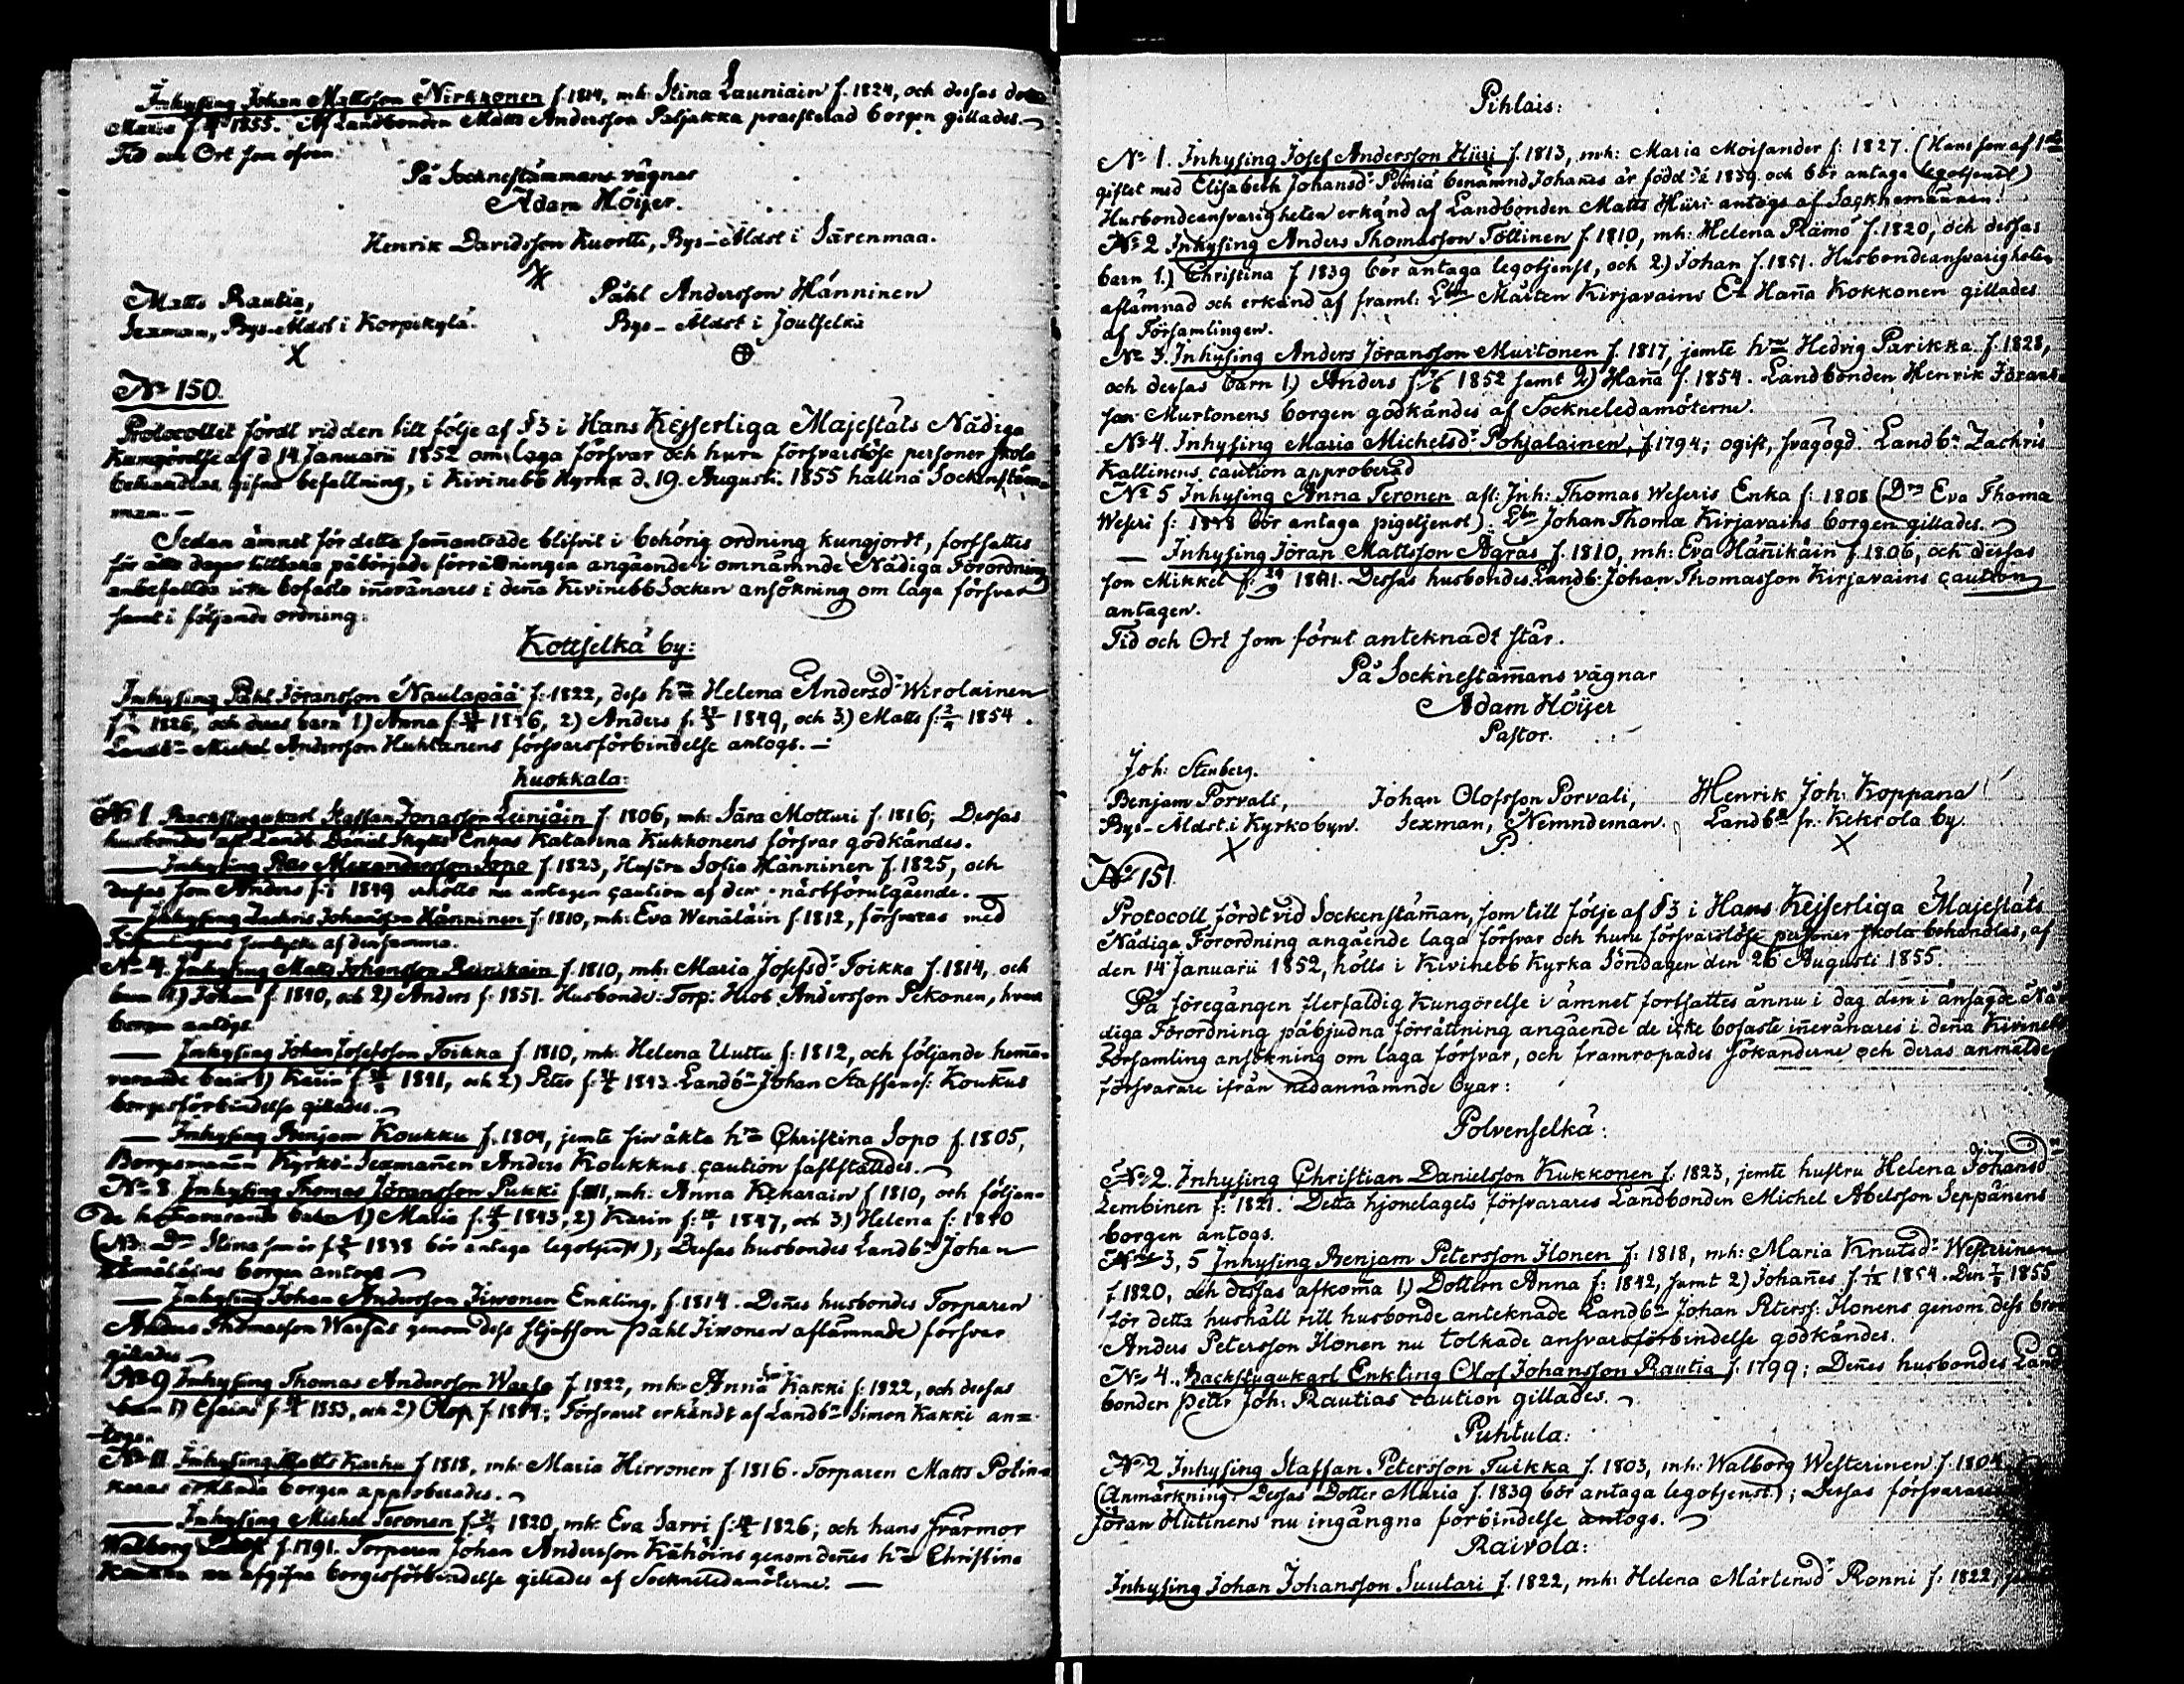 Inhysing Johan Mattsson Nirkkonen f. 1814, mh: Stina Launiain f. 1824, och dessas
Maria 1855. Af Landbonden Matts Andersson Paljakka praesterad borgen gillades.
Tid och Ort som ofvan.
På Socknestämmans vägnar
Adam Höijer.
Henrik Davidsson Kuortti, Bys-Äldst i Särenmaa.
Matts Rautia,
Sexman, Bys-Äldst i Korpikylä.
X
Påhl Andersson Hänninen
Bys-Äldst i Joutselkä
№ 150.
Protocollet fördt vid den till följe af §3 i Hans Kejserliga Majestäts Nådiga
Kungörelse af d. 14 Januarii 1852 om laga försvar och huru försvarslöse personer skola
behandlas gifne befallning, i Kivinebb Kyrka d. 19. Augusti. 1855 hållna Sockenstäm-
man. —
Sedan ämnet för detta sammanträde blifvit i behörig ordning kungjordt, fortsattes
för åtta dagar tillbaka påbörjade förrättningen angående i omnämnde Nådiga Förordning
anbefallda icke bofaste inevånares i denna Kivinebb Socken ansökning om laga försvar
samt i följande ordning:
Kottselkä by:
Inhysing Påhl Jöransson Naulapää f: 1822, dess hru Helena Andersdr Wirolainen
1826, och deras barn 1) Anna 1846, 2) Anders f. 1849, och 3.) Matts f: 2/4 1854.
Landbn Mickel Andersson Huhtanens försvarsförbindelse antogs. —
Kuokkala:
№ 1. Backstugukarl Staffan Jonasson Leiniäin f. 1806, mh: Sara Motturi f. 1816; Dessas
husbondes afl. Landb: Daniel Enkas Katarina Kukkonens försvar godkändes.
— Inhysing Alexandersson Sopo f. 1823, Hustru Sofia Hänninen f. 1825, och
dessas son Anders 1849 nu antagen caution af den nästförutgående.
— Inhysing Zachris Johansson Hänninen f. 1810, mh: Eva Wenäläin f. 1812, försvaras med
Församlingens samtycke af densamma.
№ 4. Inhysing Matts Johansson Reinikain f. 1810, mh: Maria Josefsdr Toikka f. 1814, och
barn 1) Johan f. 1840, och 2) Anders f. 1851. Husbonde: Torp: Hiob Andersson Pekonen, hvars
borgen antogs.
— Inhysing Johan Josefsson Toikka f. 1810, mh. Helena Uuttu f: 1812, och följande hemma-
varande barn 1) Karin 1841, och 2) Peter 1843. Landbn Johan Staffanss: Koukus
borgesförbindelse gillades.
— Inhysing Benjam Koukku f. 1804, jemte sin äkta hru Christina Sopo f. 1805,
Borgesmannen Kyrko-Sexmannen Anders Koukkus caution fastställdes.
№ 8. Inhysing Thomas Jöransson Pukki mh: Anna Kekarain f 1810, och följan-
de hemmavarande barn 1) Maria 1843, 2) Karin 1847, och 3.) Helena f: 1840
(NB: Dr Stina som är 1838 bör antaga legotjenst); Dessas husbondes Landbn Johan
borgen antogs
— Inhysing Johan Andersson Jiwonen Enkling, f. 1814. Dennes husbondes Torparen
Anders Thomasson Wassas genom dess stjufson Påhl Jiwonen aflämnade försvar
gillades
№ 9 Inhysing Thomas Andersson f. 1822, mh: Anna Kakki f: 1822, och dessas
barn 1) Esaias 1853, och 2) Olof; Försvaret erkändt af Landbn Simon Kakki an-
togs.
№ 11 Inhysing Matts Karhu f 1818, mh: Maria Hirvonen f. 1816. Torparen Matts
erkända borgen approberades.
— Inhysing Michel Teronen 1820, mh: Eva Sarvi 1826; och hans svärmor
Walborg f. 1791. Torparen Johan Andersson Kähöins genom dennes hru Christina
nu afgifne borgesförbindelse gillades af Sockneledamöterne. —
Pihlais:
№ 1. Inhysing Josef Andersson Hüri f. 1813, mh: Maria Moisander f: 1827. (Hans son af 1sta
giftet med Elisabeth Johansdr benämnd Johannes är född 1839. och bör antaga legotjenst)
Husbondeansvarigheten erkänd af Landbonden Matts Hüri antogs af Socknemännen.
№ 2 Inhysing Anders Thomasson Töttinen f. 1810, mh: Helena Rämö f. 1820, och dessas
barn 1.) Christina f 1839 bör antaga legotjenst, och 2.) Johan f. 1851. Husbondeansvarigheten
aflämnad och erkänd af framl: Lbn Mårten Kirjavains Ea Hanna Kokkonen gillades
af Församlingen.
№ 3. Inhysing Anders Jöransson Murtonen f. 1817, jemte hru Hedvig Parikka f. 1828,
och dersas barn 1.) Anders 1852 samt 2) Hanna f. 1854. Landbonden Henrik Jörans-
son Murtonens borgen godkändes af Sockneledamöterne.
№ 4. Inhysing Maria Michelsdr Pohjalainen, f. 1794; ogift, svagögd. Landbn Zachris
Kallinens caution approberad
№ 5 Inhysing Anna Teronen afl: Inh: Thomas Weseris Enka f: 1808 (Drn Eva Thoma
Weseri f: 1838 bör antaga pigetjenst). Lbn Johan Thomæ Kirjavains borgen gillades.
— Inhysing Jöran Mattsson Ägräs f. 1810, mh: Eva Hännikäin f. 1806, och dessas
son Mikkel 1841. Dessas husbondes Landb: Johan Thomasson Kirjavains caution
antagen.
Tid och Ort som förut anteknadt står.
På Socknestämans vägnar
Adam Höijer
Pastor.
Joh: Stenberg.
Benjam Porvali,
Bys-Äldst. i Kyrkobyn.
X
Johan Olofsson Porvali,
Sexman, Nemndeman.
P
Henrik Joh: Koppana
Landbn fr. Kekrola by.
X
№ 151
Protocoll fördt vid Sockenstäman, som till följe af §3 i Hans Kejserliga Majestäts
Nådiga Förordning angående laga försvar och huru försvarslöse personer skola behandlas, af
den 14 Januarii 1852, hölls i Kivinebb Kyrka Söndagen den 26 Augusti 1855.
På föregången flerfaldig Kungörelse i ämnet fortsattes ännu i dag den i ansagde Nå-
diga Förordning påbjudna förrättning angående de icke bofaste inevånares i dena Kivinebb
Församling ansökning om laga försvar, och framropades sökanderne och deras anmälde
försvarare ifrån nedannämnde byar:
Polvenselkä:
№ 2. Inhysing Christian Danielsson Kukkonen f. 1823, jemte hustru Helena Johansdr
Lembinen f: 1821. Detta hjonelagets försvarares Landbonden Michel Abelsson Seppänens
borgen antogs.
3, 5 Inhysing Benjam Petersson Ilonen f: 1818, mh: Maria Knutsdr Westerinen
f. 1820, och dessas afkoma 1.) Dottern Anna f: 1842, samt 2) Johannes f. 1/12 1854. Den 1855
för detta hushåll till husbonde anteknade Landbn Johan Peterss: Ilonens genom dess bror
Anders Petersson Ilonen nu tolkade ansvarsförbindelse godkändes.
№ 4. Backstugukarl Enkling Olof Johansson Rautia f. 1799; Denes husbondes Land
bonden Petter Joh: Rautias caution gillades.
Puhtula:
№ 2 Inhysing Staffan Petersson Tuikka f. 1803, mh: Walborg Westerinen f. 1804
(Anmärkning: Dessas Dotter Maria f. 1839 bör antaga legotjenst); Dessas försvarares
Jöran Hutinens nu ingångna förbindelse antogs.
Raivola:
Inhysing Johan Johansson Suutari f. 1822, mh: Helena Mårtensdr Ronni f: 1822,